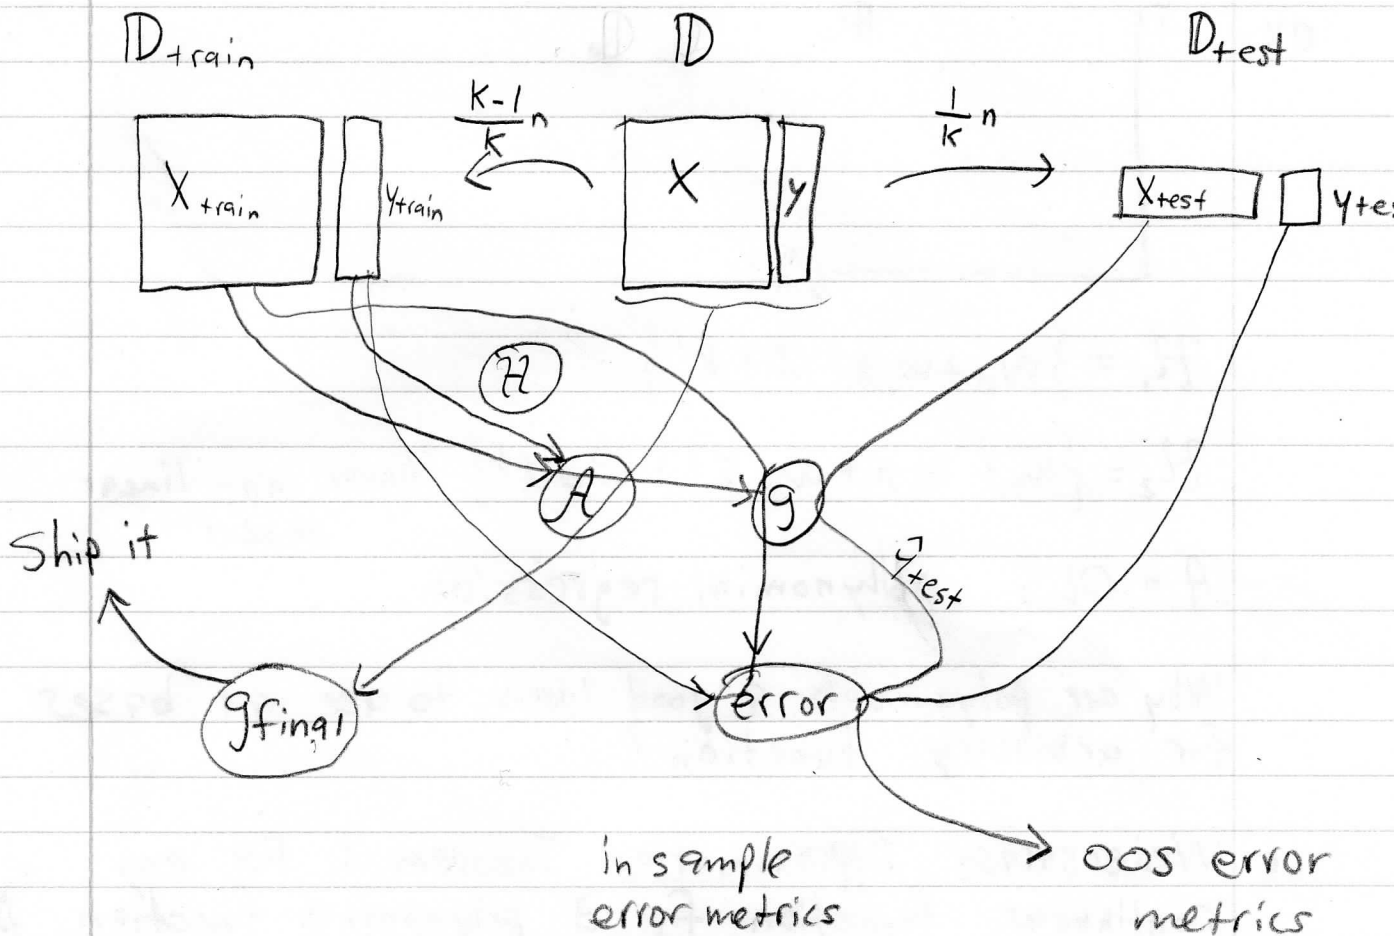 𝔻train 𝔻 𝔻test
K-1/K n 1/K n
Xtrain ytrain X y Xtest ytes
H
A g
Ship it
ŷtest
gfinal error
in sample
error metrics
oos error
metrics